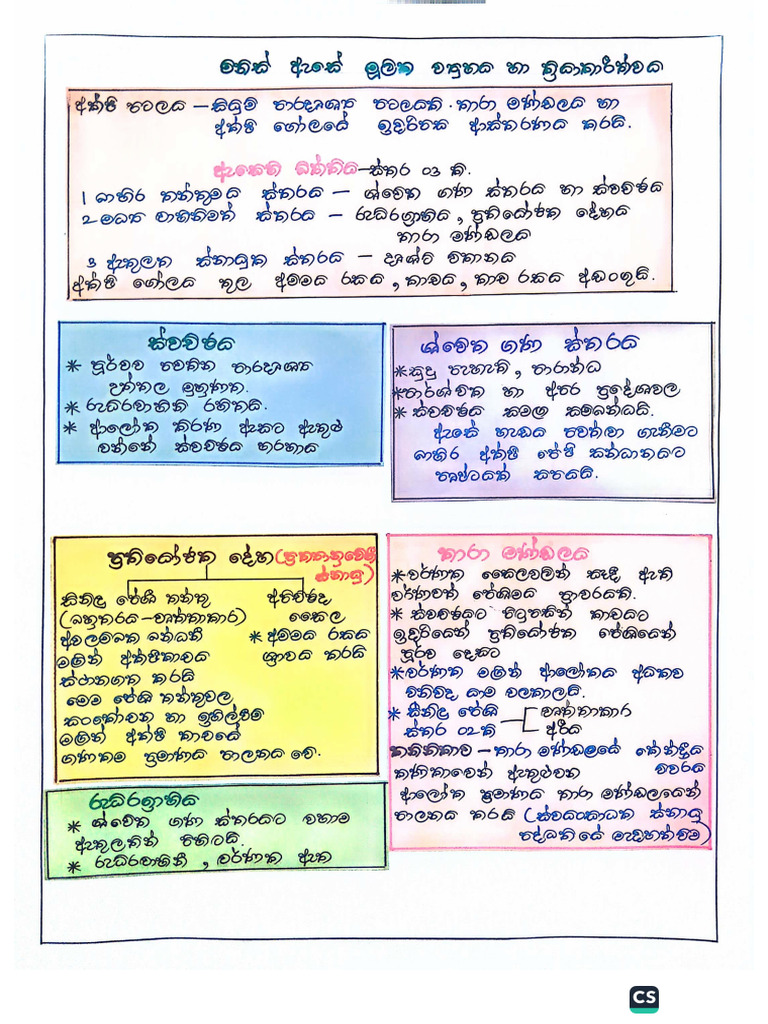 මිනිස් ඇසේ මූලික ව්‍යුහය හා ක්‍රියාකාරීත්වය
අක්ෂි පටලය – සියුම් පාරදෘශ්‍ය පටලයකි. තාරා මණ්ඩලය හා
අක්ෂි ගෝලයේ ඉදිරිපස ආස්තරණය කරයි.
ඇසෙහි බිත්තිය – ස්තර 03 කි.
1 බාහිර තන්තුමය ස්තරය – ශ්වේත ඝණ ස්තරය හා ස්වච්ඡය
2 මධ්‍ය වාහිනිමත් ස්තරය – රුධිරග්‍රාහිය, ප්‍රතියෝජක දේහය
තාරා මණ්ඩලය
3 ඇතුලත ස්නායුක ස්තරය – දෘශ්ටි විතානය
අක්ෂි ගෝලය තුල අම්මය රසය, කාචය, කාච රසය අඩංගුයි.
ස්වච්ඡය
* පූර්වව පවතින පාරදෘශ්‍ය
උත්තල මුහුණක.
* රුධිරවාහිනී රහිතයි.
* ආලෝක කිරණ ඇසට ඇතුළු
වන්නේ ස්වච්ඡය හරහාය
ශ්වේත ඝණ ස්තරය
* සුදු පැහැති, පාරාන්ධ
* පාර්ශ්වික හා අපර ප්‍රදේශවල
* ස්වච්ඡය සමග සම්බන්ධයි.
ඇසේ හැඩය පවත්වා ගැනීමට
බාහිර අක්ෂි පේශි සන්ධානයට
පෘෂ්ටයක් සපයයි.
ප්‍රතියෝජක දේහ (ප්‍රත්‍යානුවේගී
ස්නායු)
සිනිඳු පේශී තන්තු
(බහුතරය - වෘත්තාකාර)
අවලම්බක බන්ධනී
මගින් අක්ෂිකාචය
ස්ථානගත කරයි
මෙම පේශී තන්තුවල
සංකෝචන හා ඉහිල්වීම්
මගින් අක්ෂි කාචයේ
ගණකම ප්‍රමාණය පාලනය වේ.
අපිච්ඡද
සෛල
* අම්මය රසය
ශ්‍රාවය කරයි
තාරා මණ්ඩලය
* වර්ණක සෛලවලින් සෑදී ඇති
වර්ණවත් පේශිමය ප්‍රාචරයකි.
* ස්වච්ඡයට පිටුපසින් කාචයට
ඉදිරියෙන් ප්‍රතියෝජක පේශියෙන්
පූර්ව දෙසට
* වර්ණක මගින් ආලෝකය අධිකව
විනිවිද යාම වලකාලයි.
* සිනිඳු පේශි
ස්තර 02 කි
වෘත්තාකාර
අරීය
කනිනිකාව – තාරා මණ්ඩලයේ කේන්ද්‍රීය
විවරය
කණිකාවෙන් ඇතුළුවන
ආලෝක ප්‍රමාණය තාරා මණ්ඩලයෙන්
පාලනය කරයි (ස්වයංසාධක ස්නායු
පද්ධතියේ මැදිහත්වීම)
රුධිරග්‍රාහිය
* ශ්වේත ඝණ ස්තරයට වහාම
ඇතුලතින් පිහිටයි.
* රුධිරවාහිනී, වර්ණක ඇත
CS